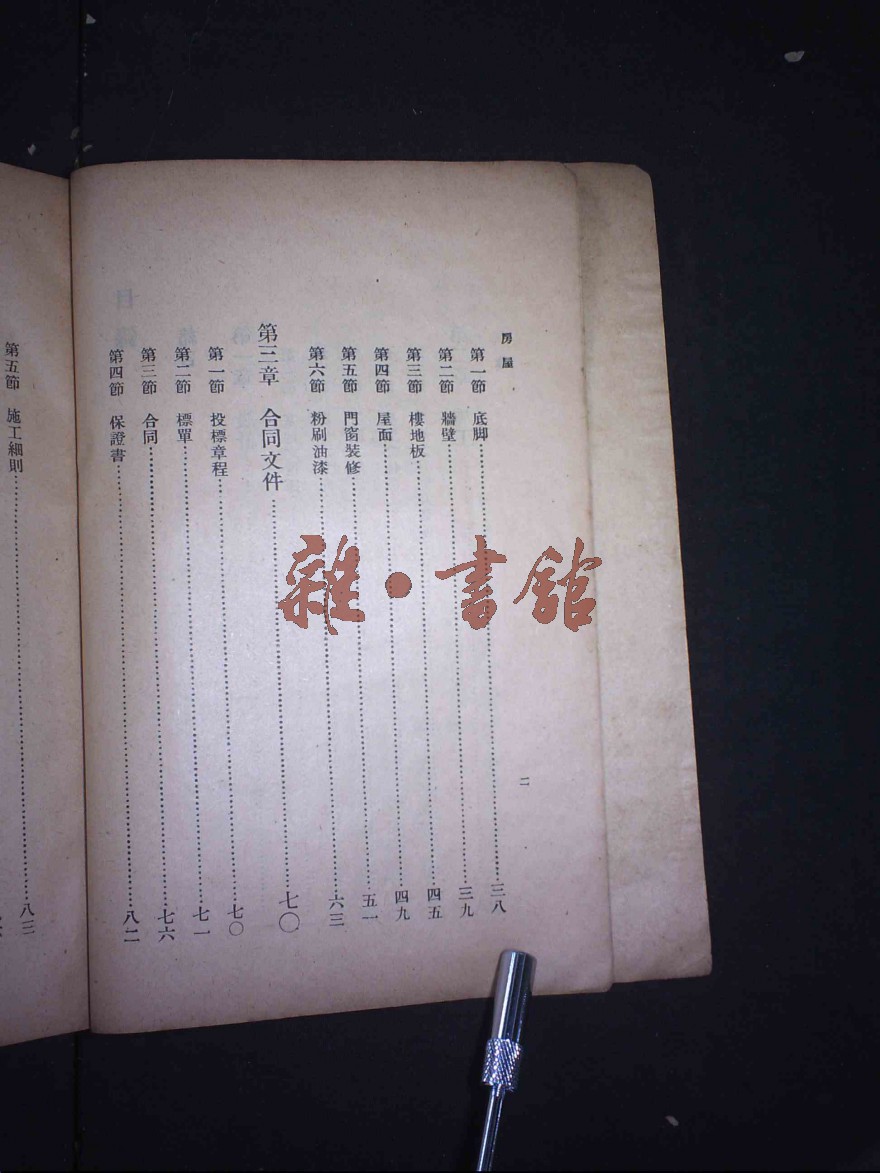 房屋
第一節 底脚……三八
第二節 牆壁……三九
第三節 樓地板……四五
第四節 屋面……四九
第五節 門窗裝修……五一
第六節 粉刷油漆……六三
第三章 合同文件……七〇
第一節 投標章程……七〇
第二節 標單……七一
第三節 合同……七六
第四節 保證書……八二
二
第五節 施工細則……八三
雜·書館